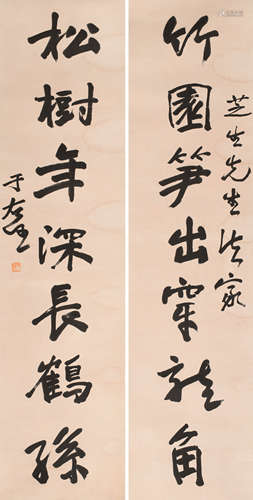 芝生先生法家
竹園笋出龍角
松樹年深長鶴孫
于右任